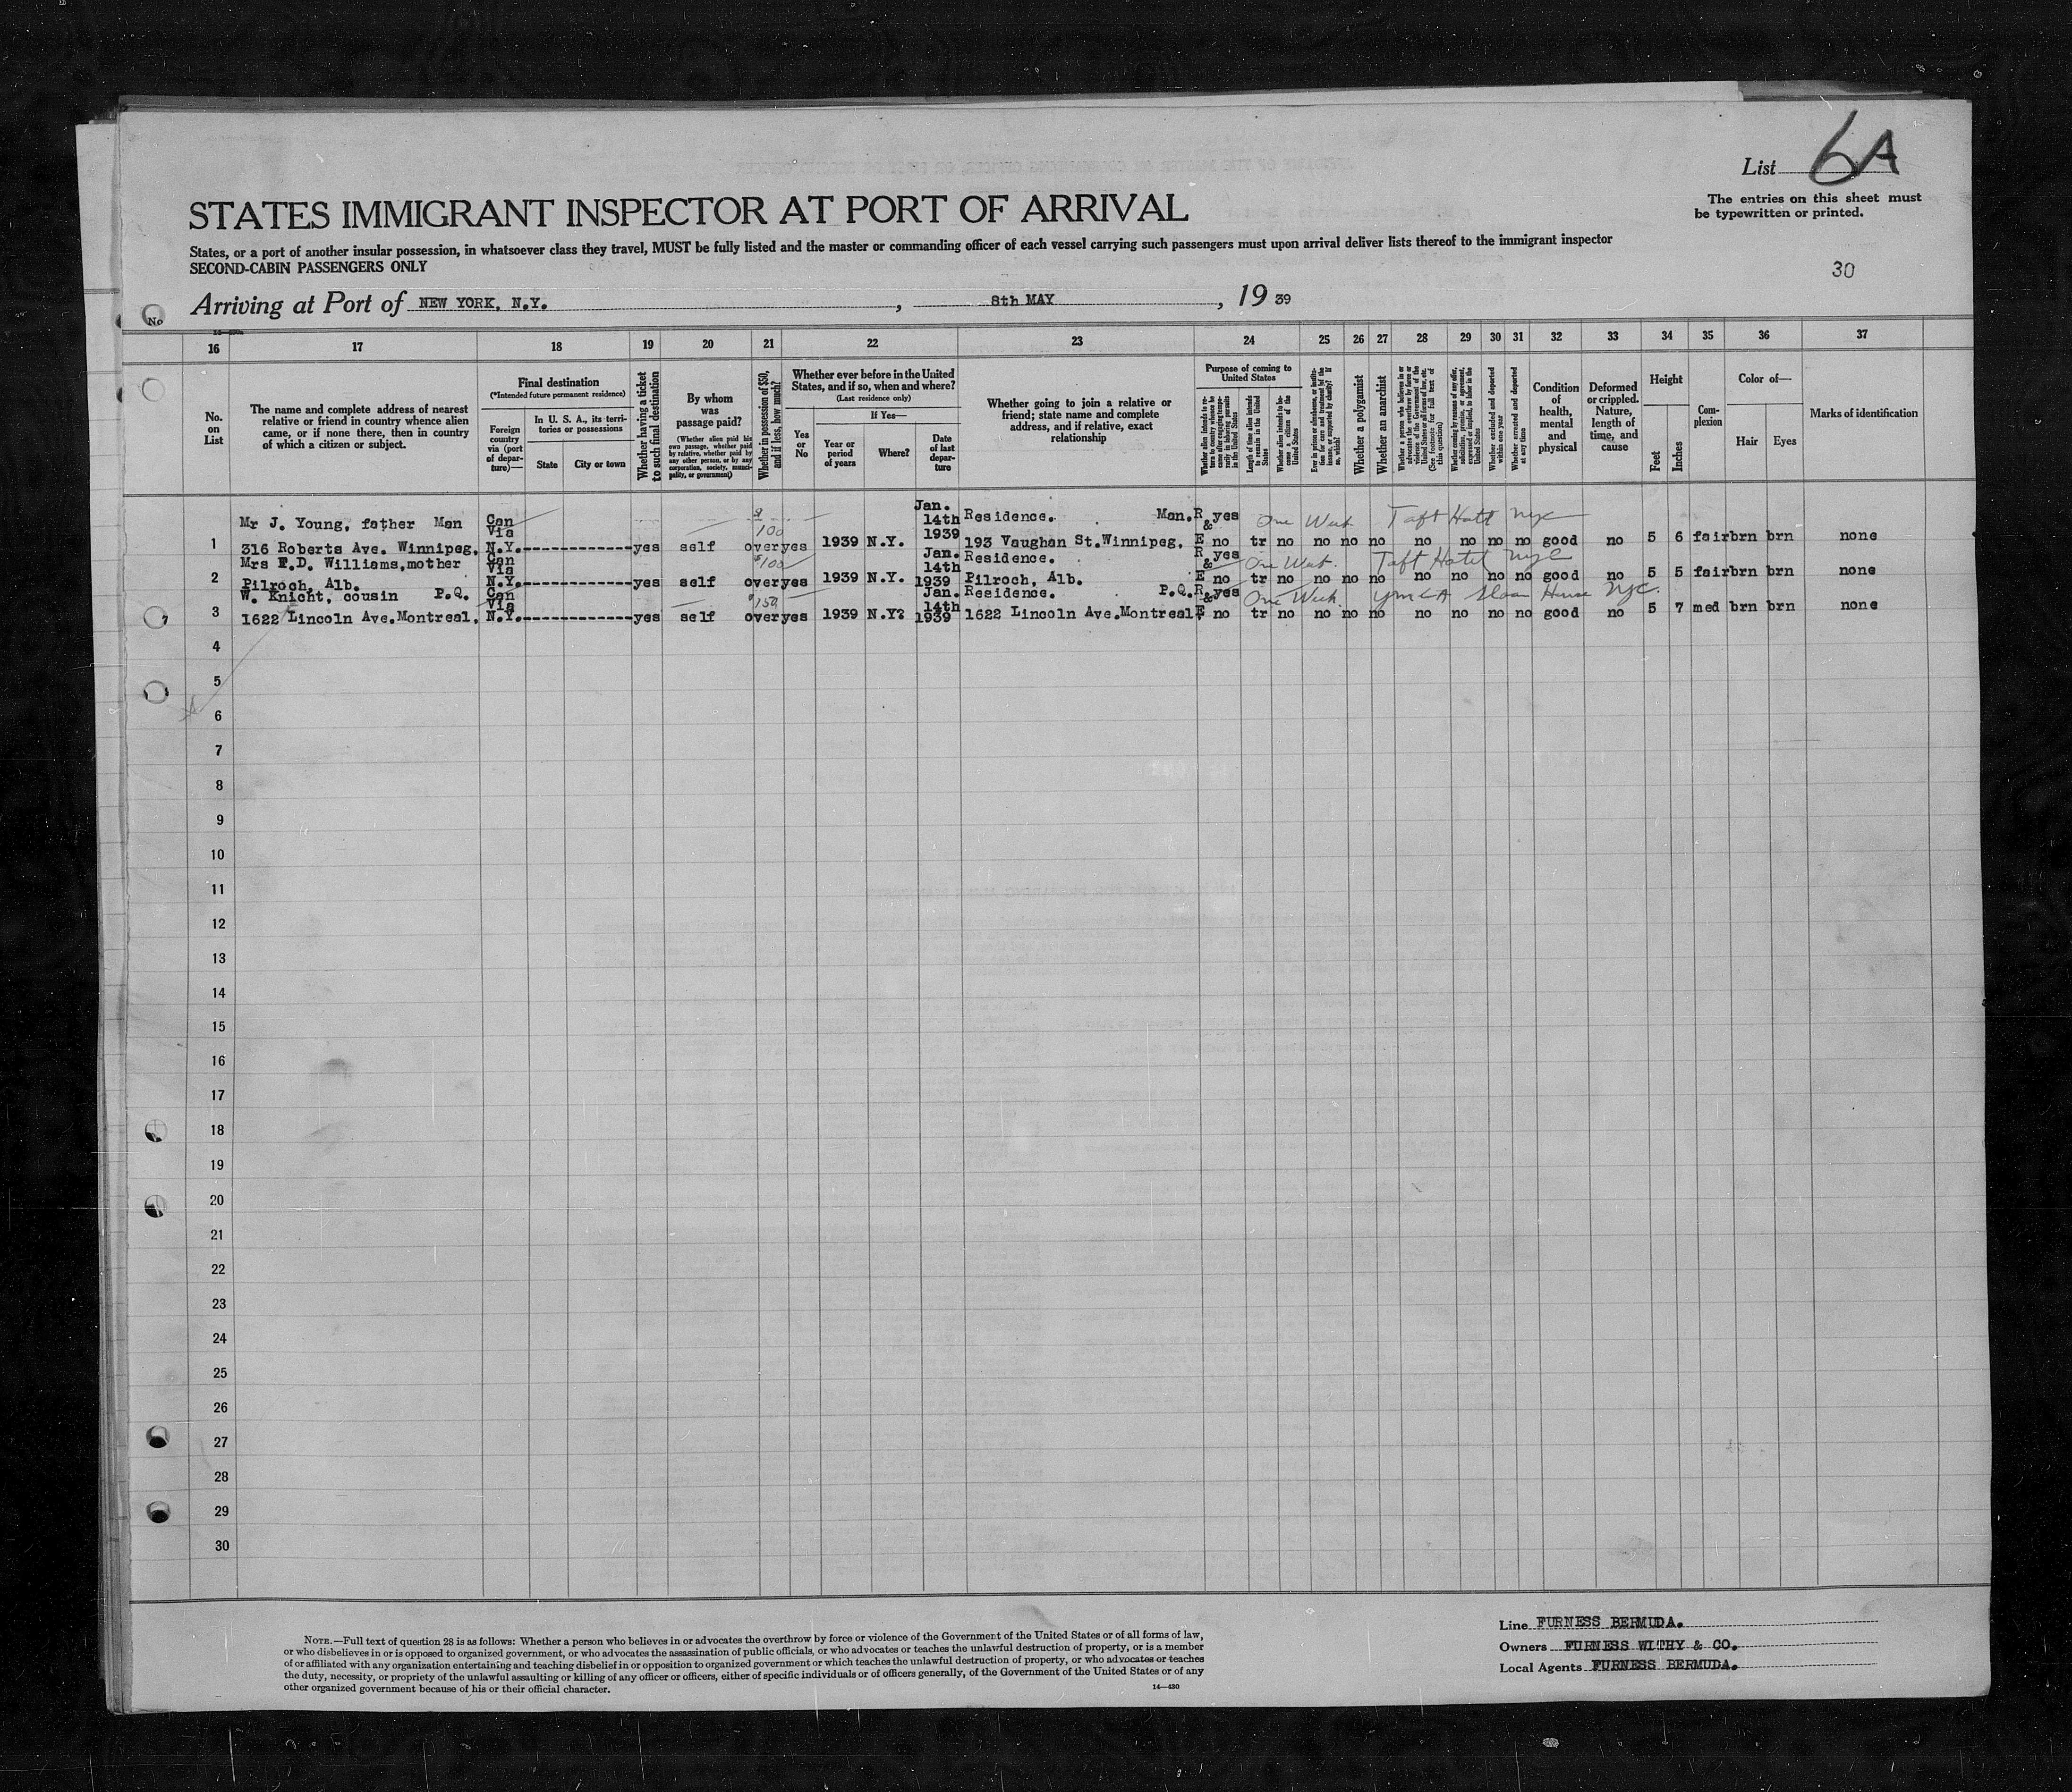 List 6A
The entries on this sheet must
be typewritten or printed.
STATES IMMIGRANT INSPECTOR AT PORT OF ARRIVAL
States, or a port of another insular possession, in whatsoever class they travel, MUST be fully listed and the master or commanding officer of each vessel carrying such passengers must upon arrival deliver lists thereof to the immigrant inspector
SECOND-CABIN PASSENGERS ONLY
30
Arriving at Port of NEW YORK, N.Y. , 8th MAY , 19 39
No
16 17 18 19 20 21 22 23 24 25 26 27 28 29 30 31 32 33 34 35 36 37
No. on List
The name and complete address of nearest relative or friend in country whence alien came, or if none there, then in country of which a citizen or subject.
Final destination
(*Intended future permanent residence)
Foreign country via (port of departure)—
In U. S. A., its territories or possessions
State
City or town
Whether having a ticket to such final destination
By whom was passage paid?
(Whether alien paid his own passage, whether paid by relative, whether paid by any other person, or by any corporation, society, municipality, or government)
Whether in possession of $50, and if less, how much?
Whether ever before in the United States, and if so, when and where?
(Last residence only)
Yes or No
If Yes—
Year or period of years
Where?
Date of last departure
Whether going to join a relative or friend; state name and complete address, and if relative, exact relationship
Purpose of coming to United States
Whether alien intends to return to country whence he came after engaging temporarily in laboring pursuits in the United States
Length of time alien intends to remain in the United States
Whether alien intends to become a citizen of the United States
Whether a polygamist
Whether an anarchist
Whether excluded and deported within one year
Whether arrested and deported at any time
Condition of health, mental and physical
Deformed or crippled. Nature, length of time, and cause
Height
Feet
Inches
Complexion
Color of—
Hair
Eyes
Marks of identification
Mr J. Young, father Man Can Via $ 100 Jan. 14th Residence. Man. R & yes One Week Taft Hotel NYC
1 316 Roberts Ave. Winnipeg, N.Y. yes self over yes 1939 N.Y. 1939 193 Vaughan St. Winnipeg, E no tr no no no no no no no no good no 5 6 fair brn brn none
Mrs F.D. Williams, mother Can Via $100 Jan. 14th Residence. R & yes One Week. Taft Hotel NYC
2 Pilroch, Alb. N.Y. yes self over yes 1939 N.Y. 1939 Pilroch, Alb. E no tr no no no no no no no no good no 5 5 fair brn brn none
W. Knicht, cousin P.Q. Can Via $150 Jan. 14th Residence. P.Q. R & yes One Week YMCA Sloan House NYC.
3 1622 Lincoln Ave. Montreal, N.Y. yes self over yes 1939 N.Y? 1939 1622 Lincoln Ave. Montreal E no tr no no no no no no no no good no 5 7 med brn brn none
4
5
6
7
8
9
10
11
12
13
14
15
16
17
18
19
20
21
22
23
24
25
26
27
28
29
30
NOTE.—Full text of question 28 is as follows: Whether a person who believes in or advocates the overthrow by force or violence of the Government of the United States or of all forms of law,
or who disbelieves in or is opposed to organized government, or who advocates the assassination of public officials, or who advocates or teaches the unlawful destruction of property, or is a member
of or affiliated with any organization entertaining and teaching disbelief in or opposition to organized government or which teaches the unlawful destruction of property, or who advocates or teaches
the duty, necessity, or propriety of the unlawful assaulting or killing of any officer or officers, either of specific individuals or of officers generally, of the Government of the United States or of any
other organized government because of his or their official character.
14—430
Line FURNESS BERMUDA.
Owners FURNESS WITHY & CO.
Local Agents FURNESS BERMUDA.